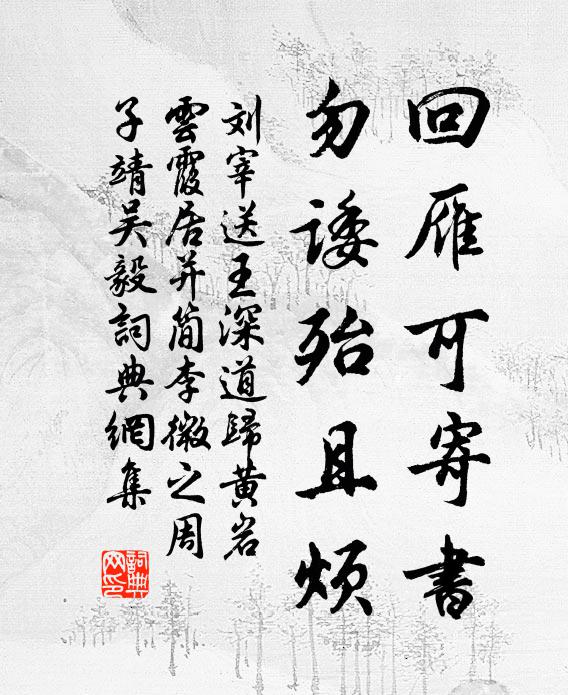 回雁可寄書
勿诿殆且烦
刘宰送王深道歸黄岩
雲霞居并简李微之周
子靖吴毅詞典網集
詞典网印